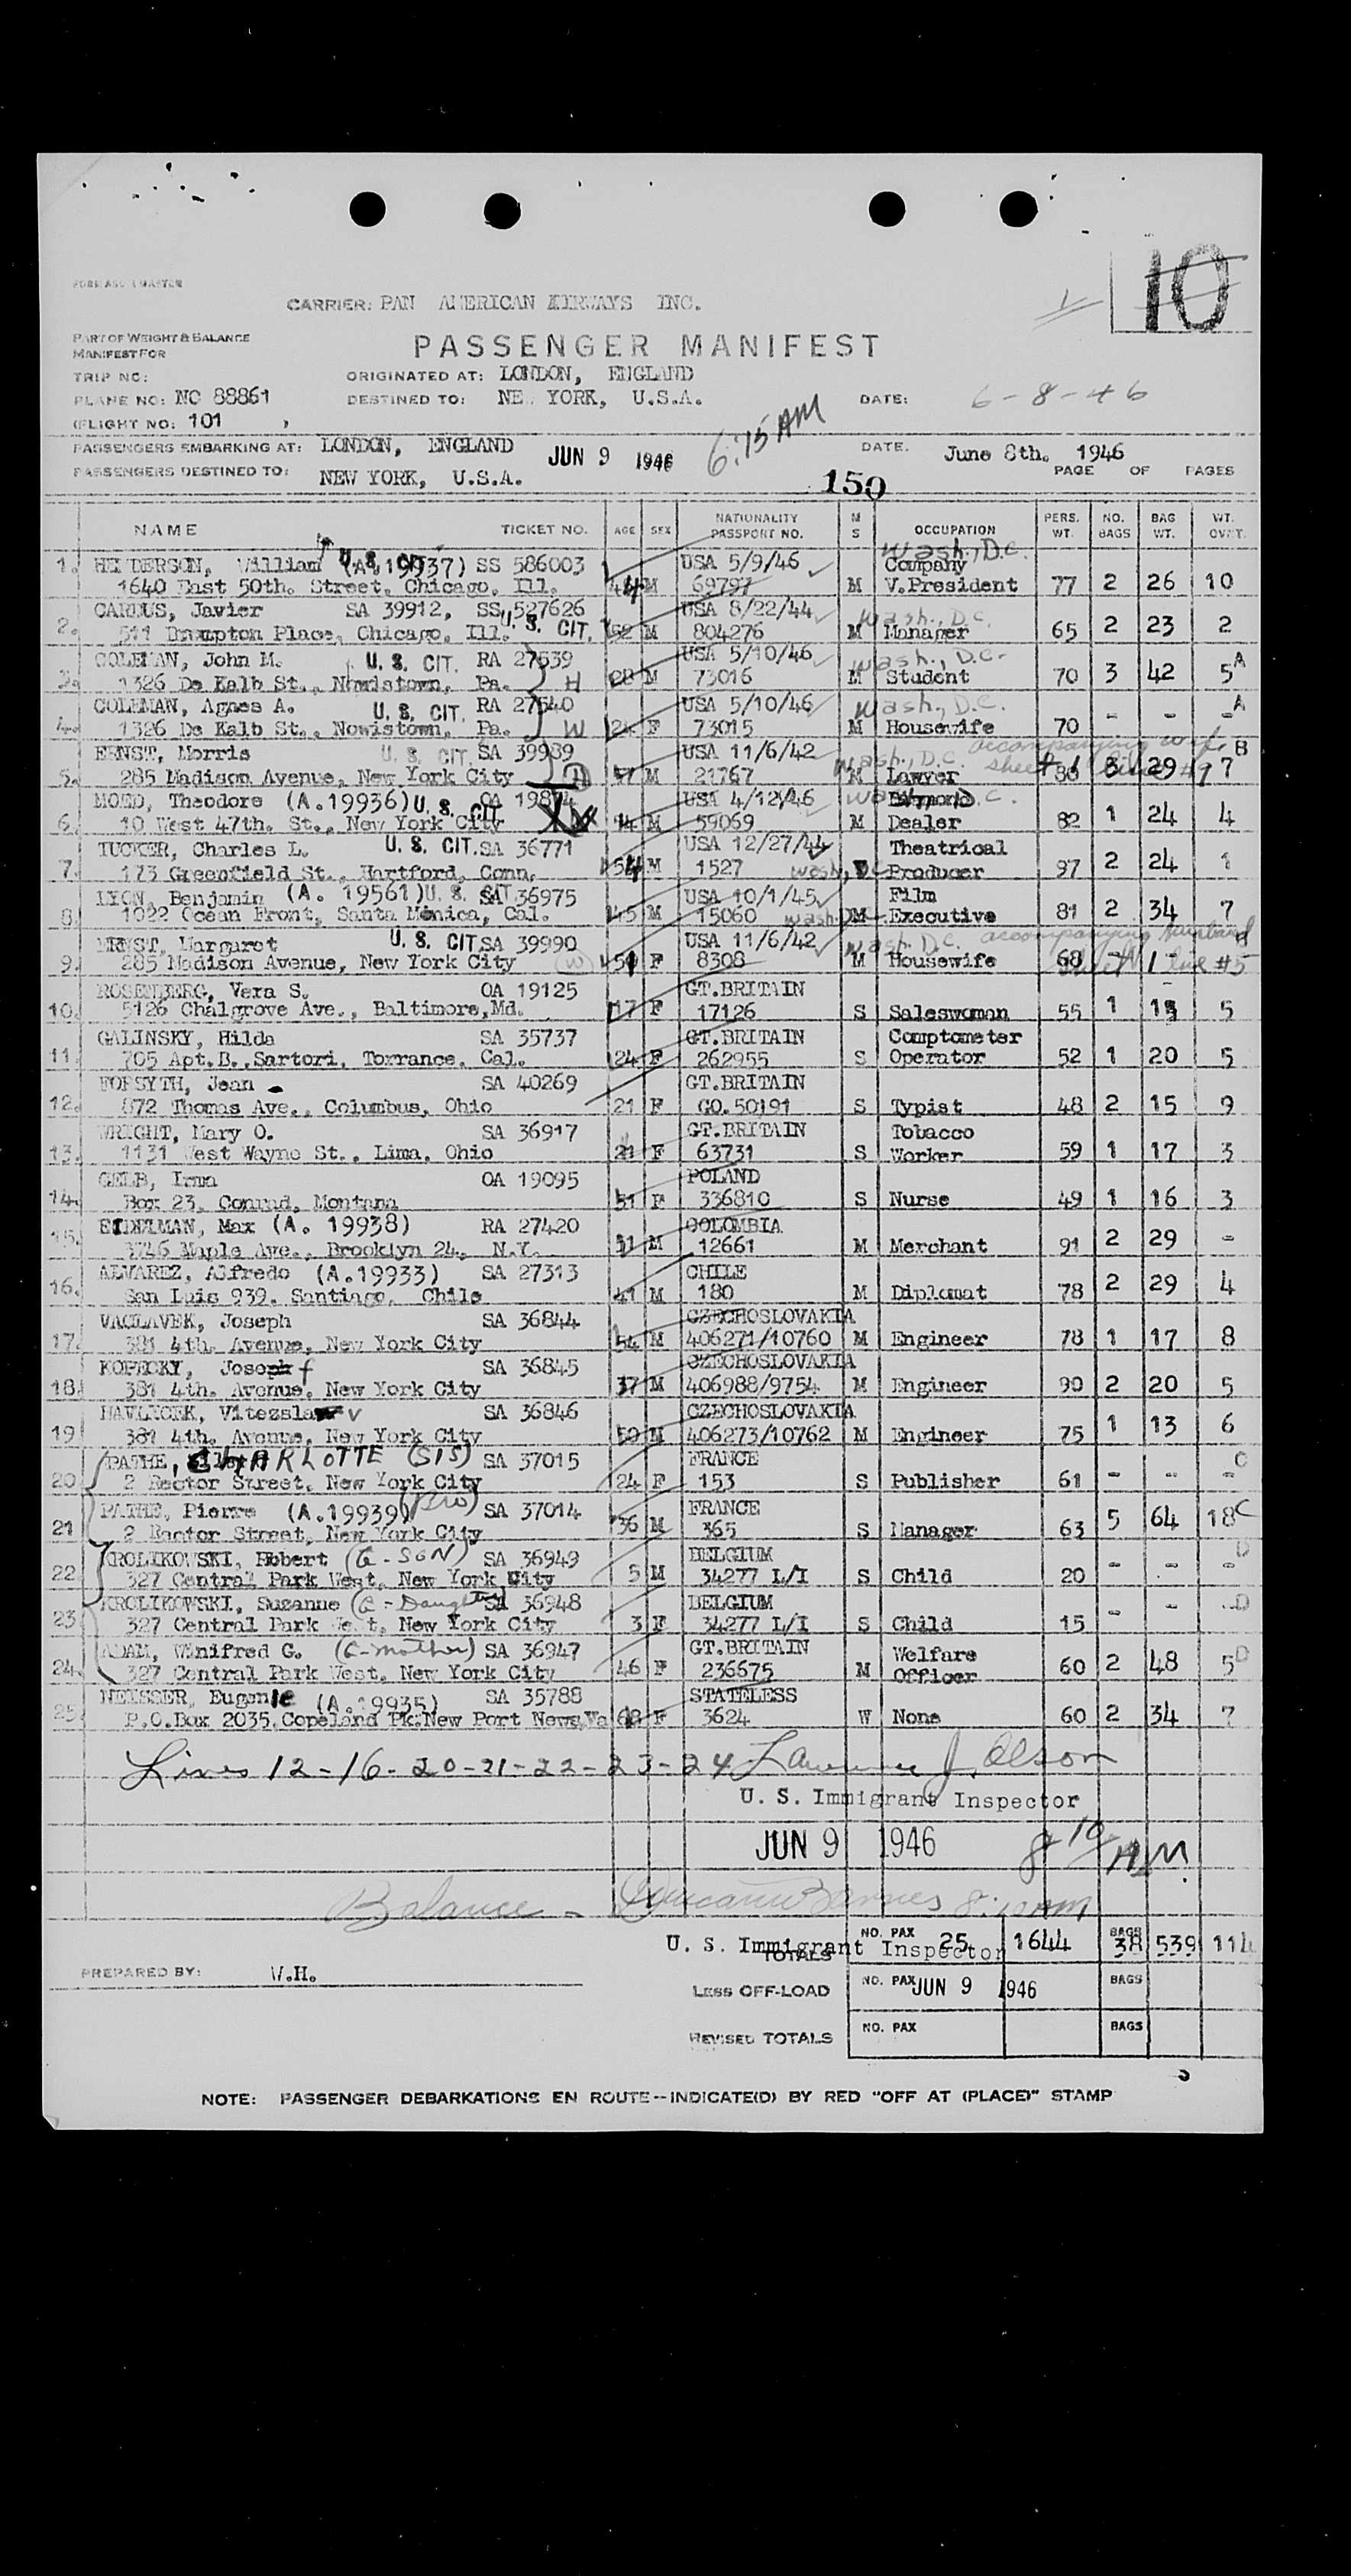 10
CARRIER: PAN AMERICAN AIRWAYS INC.
PART OF WEIGHT & BALANCE
MANIFEST FOR
PASSENGER MANIFEST
TRIP NO:
ORIGINATED AT: LONDON, ENGLAND
PLANE NO: NC 88861
DESTINED TO: NE YORK, U.S.A.
DATE: 6-8-46
(FLIGHT NO: 101 )
6:15 AM
PASSENGERS EMBARKING AT: LONDON, ENGLAND JUN 9 1946 DATE. June 8th. 1946
PASSENGERS DESTINED TO: NEW YORK, U.S.A. 150 PAGE OF PAGES
NAME TICKET NO. AGE SEX NATIONALITY PASSPORT NO. M S OCCUPATION PERS. WT. NO. BAGS BAG WT. WT. OVNT.
Wash., D.C.
1. HENDERSON, William (A.19937) U.S. CIT. SS 586003 USA 5/9/46 Company
1640 East 50th. Street, Chicago, Ill. 44 M 69797 M V.President 77 2 26 10
CARDUS, Javier SA 39912, SS 527626 USA 8/22/44 Wash., D.C.
2. 511 Brompton Place, Chicago, Ill. U. S. CIT. 52 M 804276 M Manager 65 2 23 2
COLEMAN, John M. U. S. CIT. RA 27539 USA 5/10/46 Wash., D.C. A
3. 1326 De Kalb St., Norristown, Pa. H 28 M 73016 M Student 70 3 42 5
COLEMAN, Agnes A. U. S. CIT. RA 27540 USA 5/10/46 Wash., D.C. A
4. 1326 De Kalb St., Nowistown, Pa. W 24 F 73015 M Housewife 70 - - -
ERNST, Morris U. S. CIT. SA 39989 USA 11/6/42 Wash., D.C. accompanying wife B
5. 285 Madison Avenue, New York City H 57 M 21767 M Lawyer sheet 1 line #9 86 3 29 7
MOED, Theodore (A.19936) U. S. CIT. OA 19874 USA 4/12/46 Wash., D.C. Diamond
6. 10 West 47th. St., New York City 14 M 59069 M Dealer 82 1 24 4
TUCKER, Charles L. U. S. CIT. SA 36771 USA 12/27/44 Theatrical
7. 173 Greenfield St., Hartford, Conn. 54 M 1527 Wash, D.C. Producer 97 2 24 1
LYON, Benjamin (A. 19561) U. S. CIT. SA 36975 USA 10/1/45 Film
8. 1022 Ocean Front, Santa Monica, Cal. 45 M 15060 Wash. D.C. M Executive 81 2 34 7
ERNST, Margaret U. S. CIT. SA 39990 USA 11/6/42 Wash. D.C. accompanying husband B
9. 285 Madison Avenue, New York City (W) 51 F 8308 M Housewife 68 - - sheet 1 line #5
ROSENBERG, Vera S. OA 19125 GT.BRITAIN
10. 5126 Chalgrove Ave., Baltimore,Md. 17 F 17126 S Saleswoman 55 1 15 5
GALINSKY, Hilda SA 35737 GT.BRITAIN Comptometer
11. 705 Apt.B.,Sartori, Torrance, Cal. 24 F 262955 S Operator 52 1 20 5
FORSYTH, Jean SA 40269 GT.BRITAIN
12. 872 Thomas Ave., Columbus, Ohio 21 F GO.50191 S Typist 48 2 15 9
WRIGHT, Mary O. SA 36917 GT.BRITAIN Tobacco
13. 1131 West Wayne St., Lima, Ohio 21 F 63731 S Worker 59 1 17 3
GELB, Irma OA 19095 POLAND
14. Box 23, Conrad, Montana 51 F 336810 S Nurse 49 1 16 3
EIDELMAN, Max (A. 19938) RA 27420 COLOMBIA
15. 1746 Maple Ave., Brooklyn 24, N.Y. 31 M 12661 M Merchant 91 2 29 -
ALVAREZ, Alfredo (A.19933) SA 27313 CHILE
16. San Luis 939, Santiago, Chile 41 M 180 M Diplomat 78 2 29 4
VACLAVEK, Joseph SA 36844 CZECHOSLOVAKIA
17. 381 4th. Avenue, New York City 54 M 406271/10760 M Engineer 78 1 17 8
KOPECKY, Joseph f SA 36845 CZECHOSLOVAKIA
18. 381 4th. Avenue, New York City 37 M 406988/9754 M Engineer 90 2 20 5
HAVLICEK, Vitezslav SA 36846 CZECHOSLOVAKIA
19 381 4th. Avenue, New York City 50 M 406273/10762 M Engineer 75 1 13 6
PATHE, CHARLOTTE (SIS) SA 37015 FRANCE C
20. 2 Rector Street, New York City 24 F 153 S Publisher 61 - - -
PATHE, Pierre (A.19939) (Bro) SA 37014 FRANCE
21 2 Rector Street, New York City 36 M 365 S Manager 63 5 64 18 C
KROLIKOWSKI, Robert (G-SON) SA 36949 BELGIUM D
22 327 Central Park West, New York City 5 M 34277 L/I S Child 20 - - -
KROLIKOWSKI, Suzanne (G-Daughter) SA 36948 BELGIUM
23 327 Central Park West, New York City 3 F 34277 L/I S Child 15 - - - D
ADAM, Winifred G. (G-mother) SA 36947 GT.BRITAIN Welfare
24. 327 Central Park West, New York City 46 F 236675 M Officer 60 2 48 5 D
NEISSER, Eugenie (A.19935) SA 35788 STATELESS
25. P.O.Box 2035,Copeland Pk.New Port News,Va 68 F 3624 W None 60 2 34 7
Lines 12-16-20-21-22-23-24 Lawrence J. Olson
U. S. Immigrant Inspector
JUN 9 1946 8 10 AM
Balance - Barnes 8:10 AM
U. S. Immigrant Inspector
TOTALS NO. PAX 25 1644 BAGS 38 539 114
PREPARED BY: W.H.
LESS OFF-LOAD NO. PAX JUN 9 1946 BAGS
REVISED TOTALS NO. PAX BAGS
NOTE: PASSENGER DEBARKATIONS EN ROUTE--INDICATE(D) BY RED "OFF AT (PLACE)" STAMP